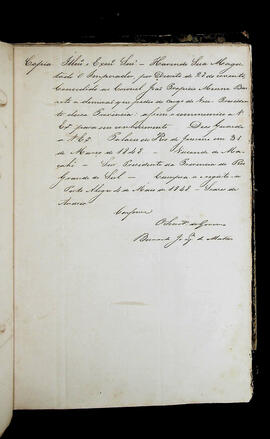 Copia Illmo e Exmo Snr - Havendo Sua Mages
tade o Imperador por Decreto de 23 do corrente
Concedido ao Coronel José Menna Bar
reto a demissão que pedio do cargo de Vice Presidente
dessa Provincia: assim o communico a V
Exa para seu conhecimento. Deos Guarde
a V Exa Palacio do Rio de Janeiro em 31
de Março de 1848 Visconde de Ma
cahé - Snr Presidente da Provincia do Rio
Grande do Sul - Cumpra-se e registe-se
Porto Alegre 4 de Maio de 1848. Soares de
Andrea
Conforme
O Secreto do Governo
Bernardo Joaqm de Mattos